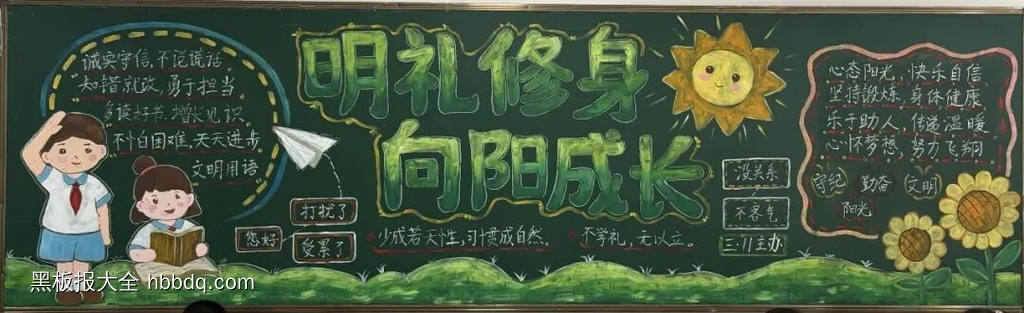 明礼修身
向阳成长
诚实守信,不说谎话
知错就改,勇于担当
多读好书,增长见识
不怕困难,天天进步
文明用语
您好
打扰了
受累了
少成若天性,习惯成自然。
不学礼,无以立。
没关系
不客气
三·11主办
心态阳光,快乐自信
坚持锻炼,身体健康
乐于助人,传递温暖
心怀梦想,努力飞翔
守纪 勤奋 文明
阳光
黑板报大全 hbbdq.com